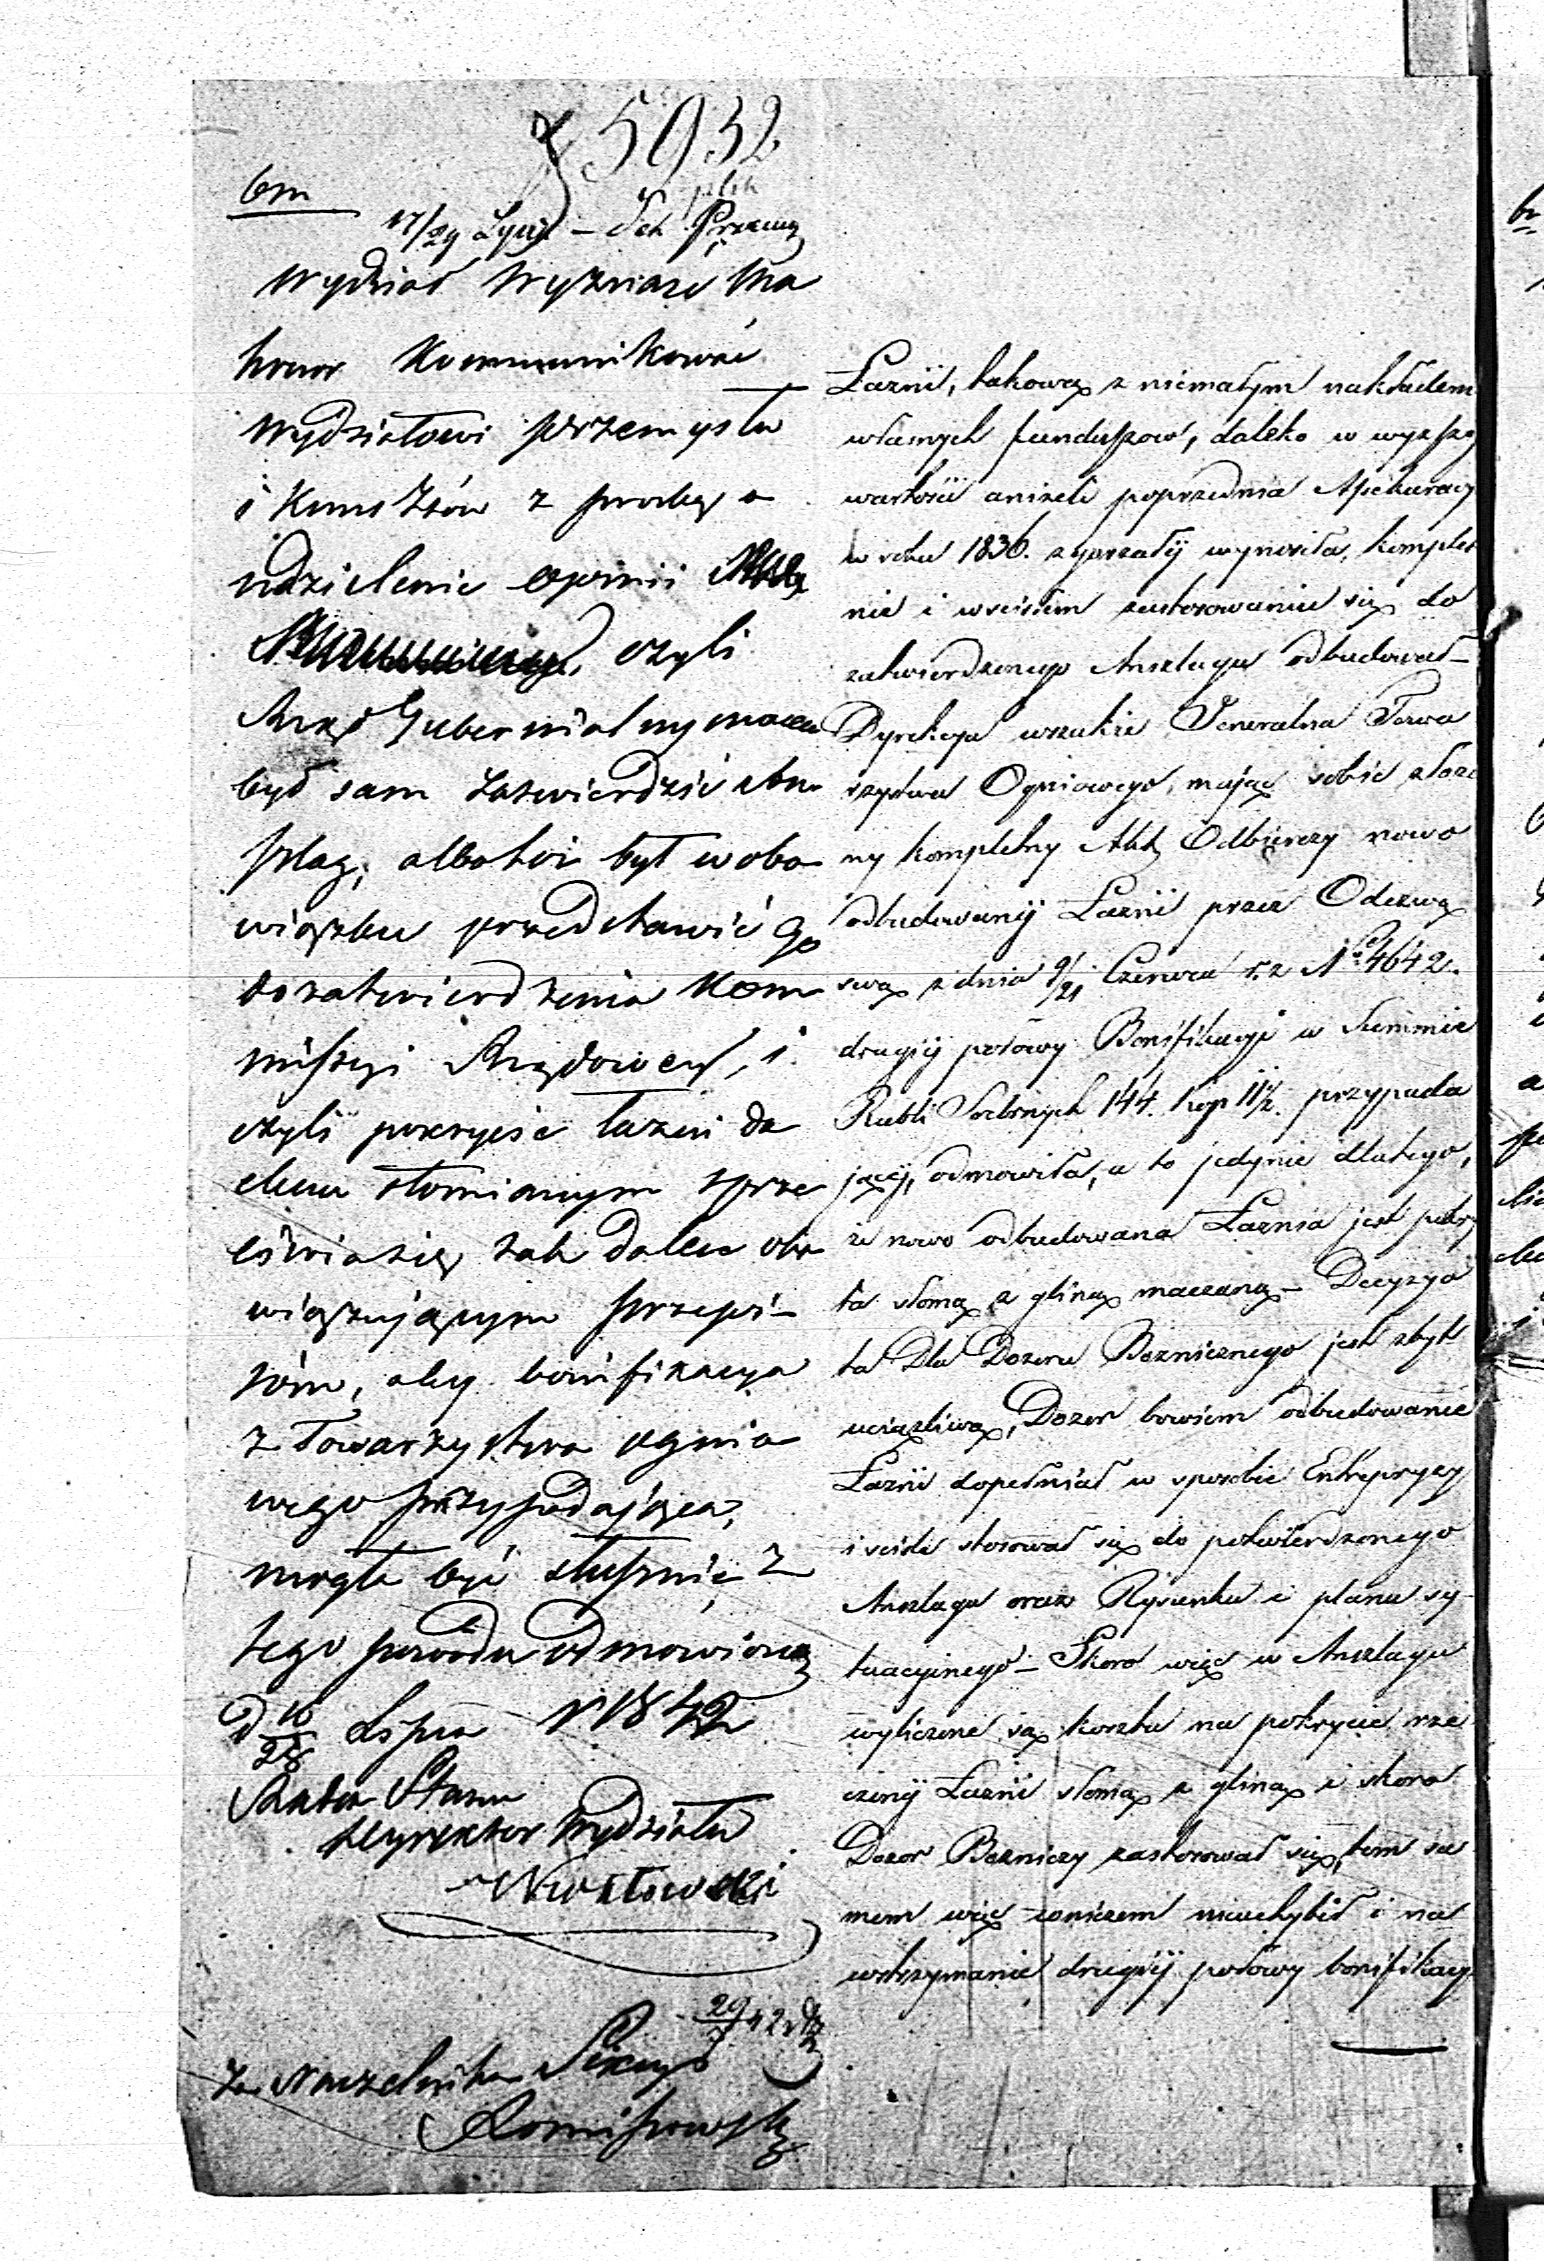 5932
17/29 Lipca – Sek Przem
Wydział Wyznań ma
honor kommunikować
Wydziałowi przemysłu
i Kunsztów z prośbą o
udzielenie opinii
czyli
Rząd Gubernialny mocen
był sam zatwierdzić ansz
szlag, albo też był w obo
wiązku przedstawić go
do zatwierdzenia Kom
missyi Rządowey, i
czyli pokrycie łaźni da
chem słomianym sprze
ciwia się tak dalece obo
wiązującym przepi-
som, aby bonifikacya
z Towarzystwa ognio
wego przypadająca,
mogła być słusznie z
tego powodu odmówioną
D 16/28 Lipca r 1842
Radca Stanu
Dyrektor Wydziału
29/7 42
Za Naczelnika Sekcyi
Łazni, takową z niemałym nakładem
własnych funduszow, daleko w wyższej
wartości aniżeli poprzednia Assekuracy
w roku 1836. zgorzałéj wynosiła, komplet
nie i w ścisłem zastosowaniu się do
zatwierdzonego Anszlagu odbudował –
Dyrekcya wszakże Jeneralna Towa
rzystwa Ogniowego, mając sobie złożo
ny kompletny Akt Odbiorczy nowo
odbudowanéj Łazni przez Odezwę
swą z dnia 9/21 Czerwca r. z No 4642.
drugiéj połowy Bonifikacyi w Summie
Rubli Srebrnych 144. kop 11½. przypada
jącéj, odmówiła, a to jedynie dlatego,
że nowo odbudowana Łaznia jest pokry
ta słomą z gliną maczaną – Decyzya
ta dla Dozoru Bóżniczego jest zbyt
uciążliwą, Dozór bowiem odbudowanie
Łazni dopełniał w sposobie Entrepryzy
i ściśle stosował się do potwierdzonego
Anszlagu oraz Rysunku i planu sy-
tuacyjnego – Skoro więc w Anszlagu
wyliczone są koszta na pokrycie rze
czonéj Łazni słomą z gliną i skoro
Dozór Bóżniczy zastosował się, tem sa
mem więc w niczem nieuchybił i na
wstrzymanie drugiéj połowy bonifikacy